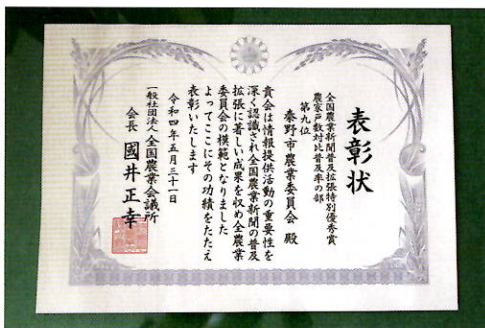 表彰状
全国農業新聞普及拡張特別優秀賞
農家戸数対比普及率の部
第九位
秦野市農業委員会 殿
貴会は情報提供活動の重要性を
深く認識され全国農業新聞の普及
拡張に著しい成果を収め全農業
委員会の模範となりました
よってここにその功績をたたえ
表彰いたします
令和四年五月三十一日
一般社団法人 全国農業会議所
会長 國井正幸